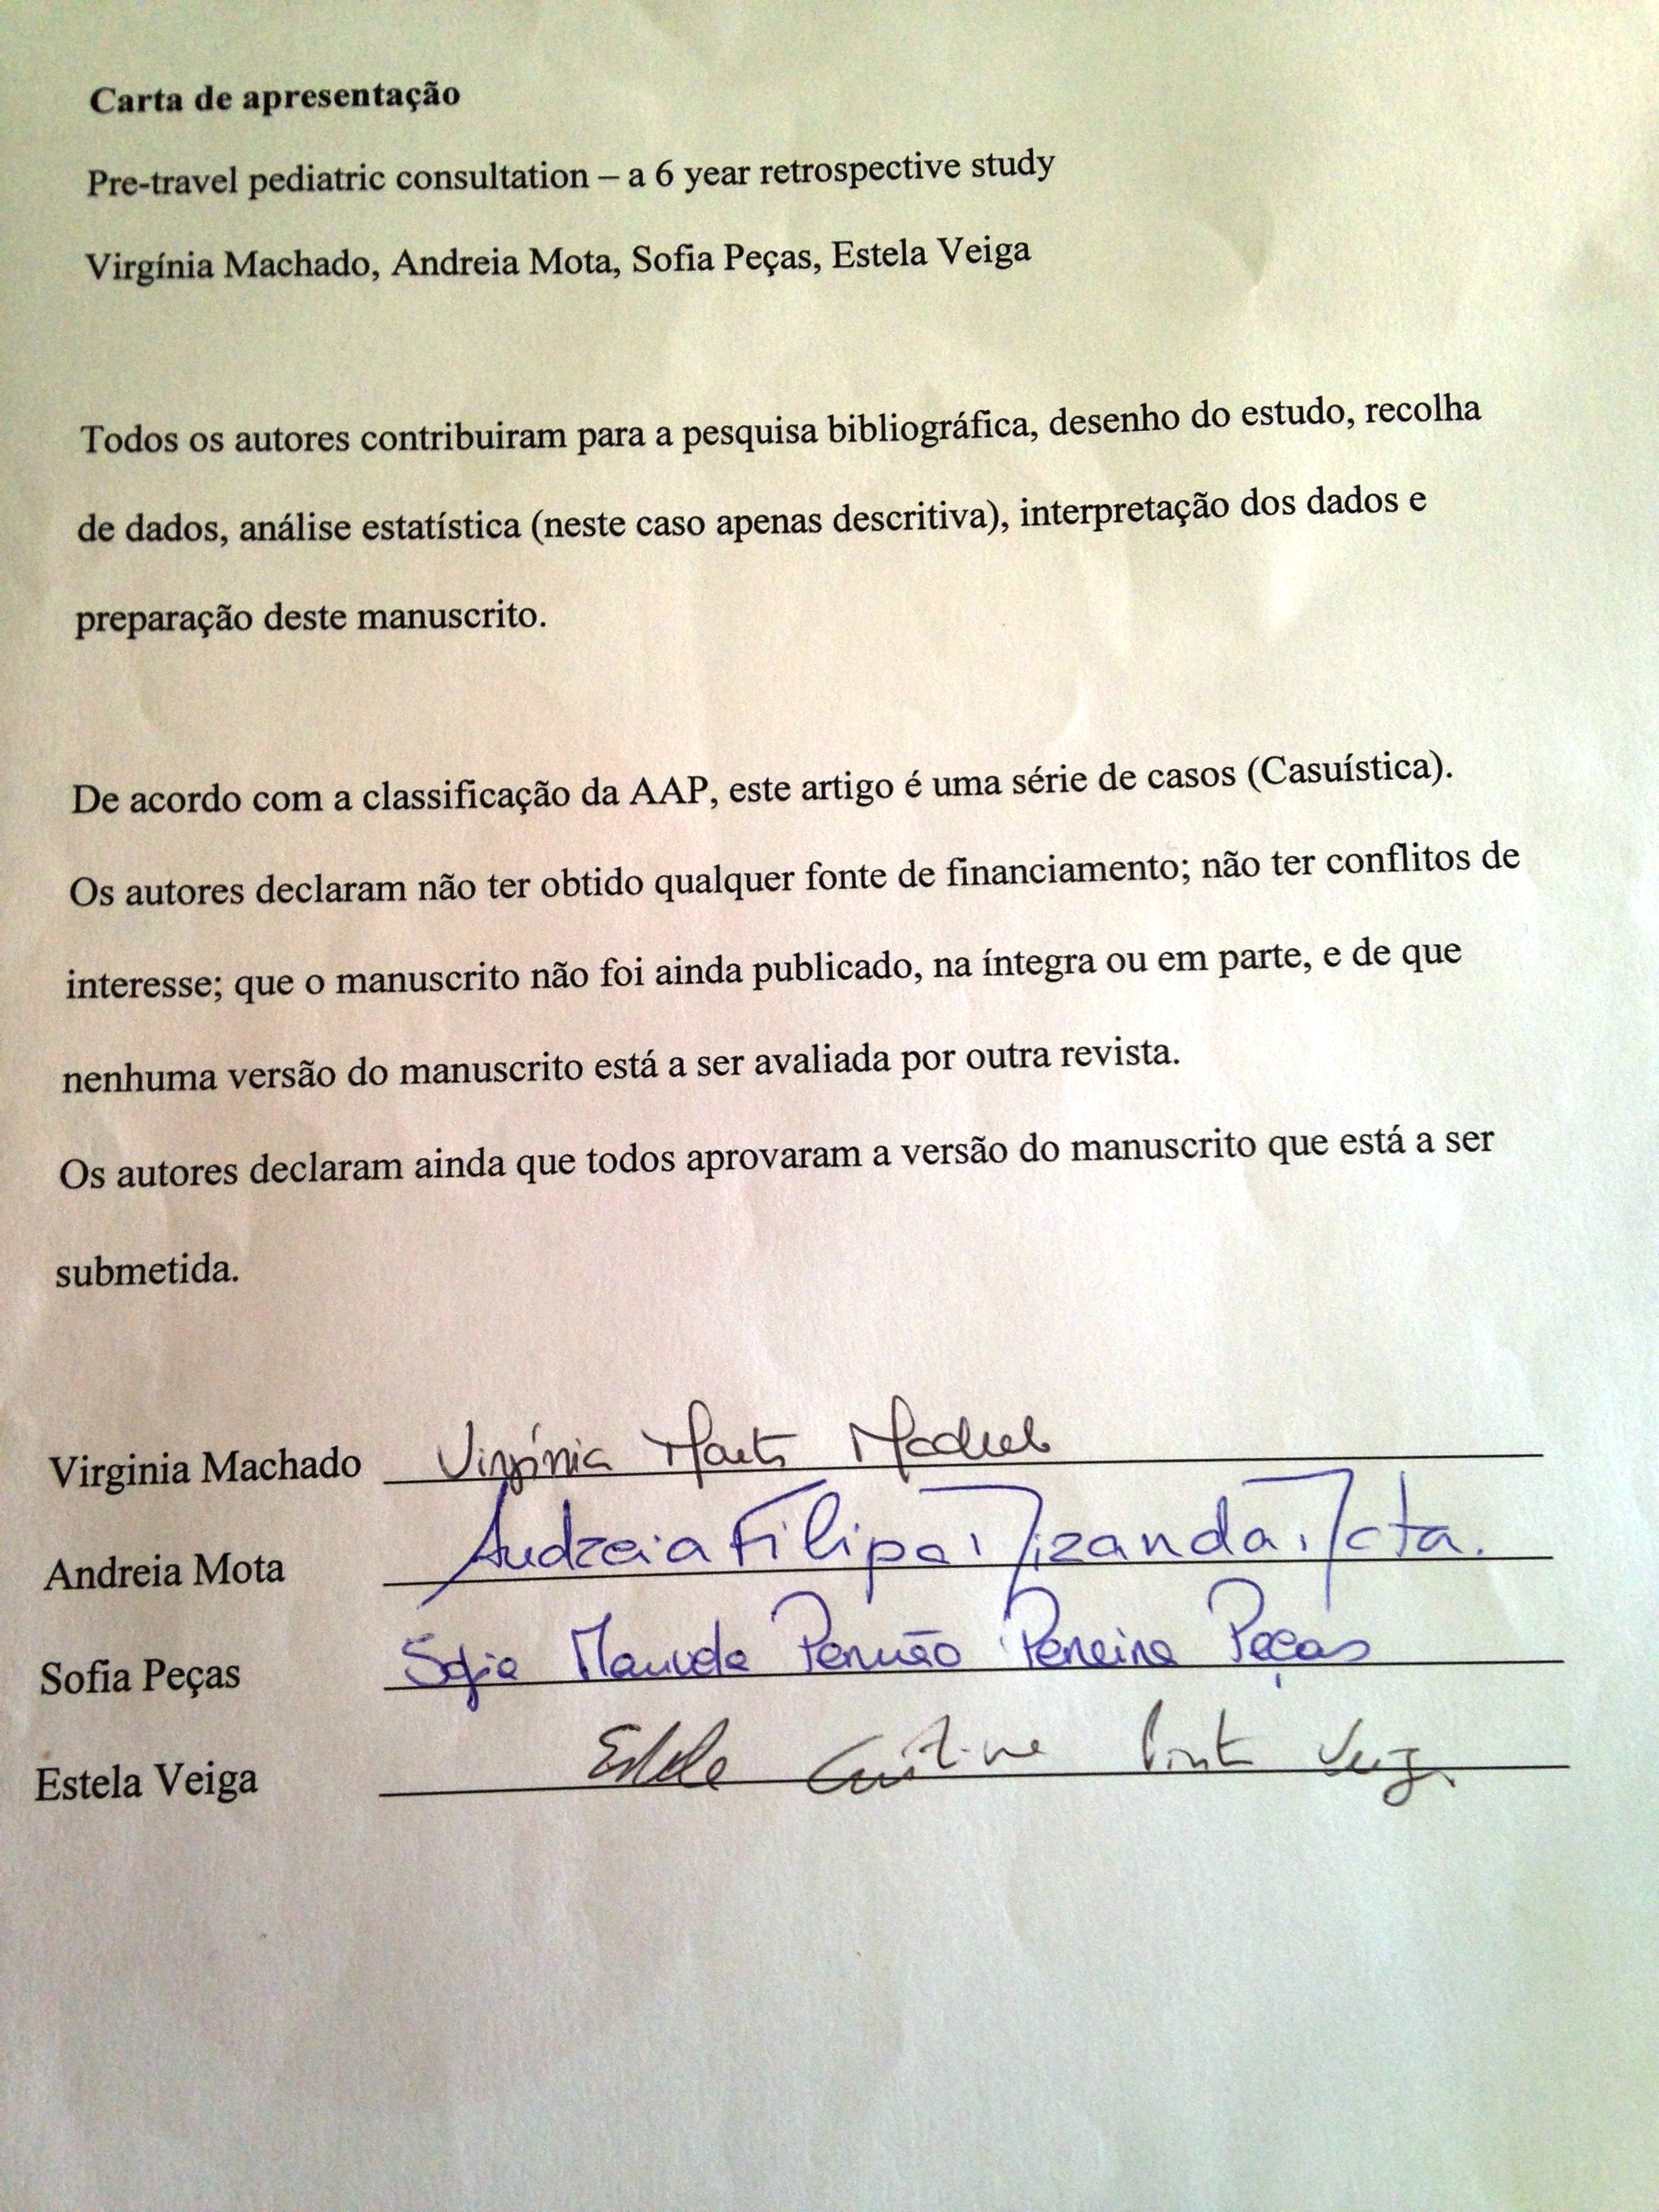 Carta de apresentação
Pre-travel pediatric consultation – a 6 year retrospective study
Virgínia Machado, Andreia Mota, Sofia Peças, Estela Veiga
Todos os autores contribuiram para a pesquisa bibliográfica, desenho do estudo, recolha
de dados, análise estatística (neste caso apenas descritiva), interpretação dos dados e
preparação deste manuscrito.
De acordo com a classificação da AAP, este artigo é uma série de casos (Casuística).
Os autores declaram não ter obtido qualquer fonte de financiamento; não ter conflitos de
interesse; que o manuscrito não foi ainda publicado, na íntegra ou em parte, e de que
nenhuma versão do manuscrito está a ser avaliada por outra revista.
Os autores declaram ainda que todos aprovaram a versão do manuscrito que está a ser
submetida.
Virginia Machado Virgínia Machado
Andreia Mota Andreia Filipa Miranda Mota.
Sofia Peças Sofia Manuela Pereira Peças
Estela Veiga Estela Cristina Veiga